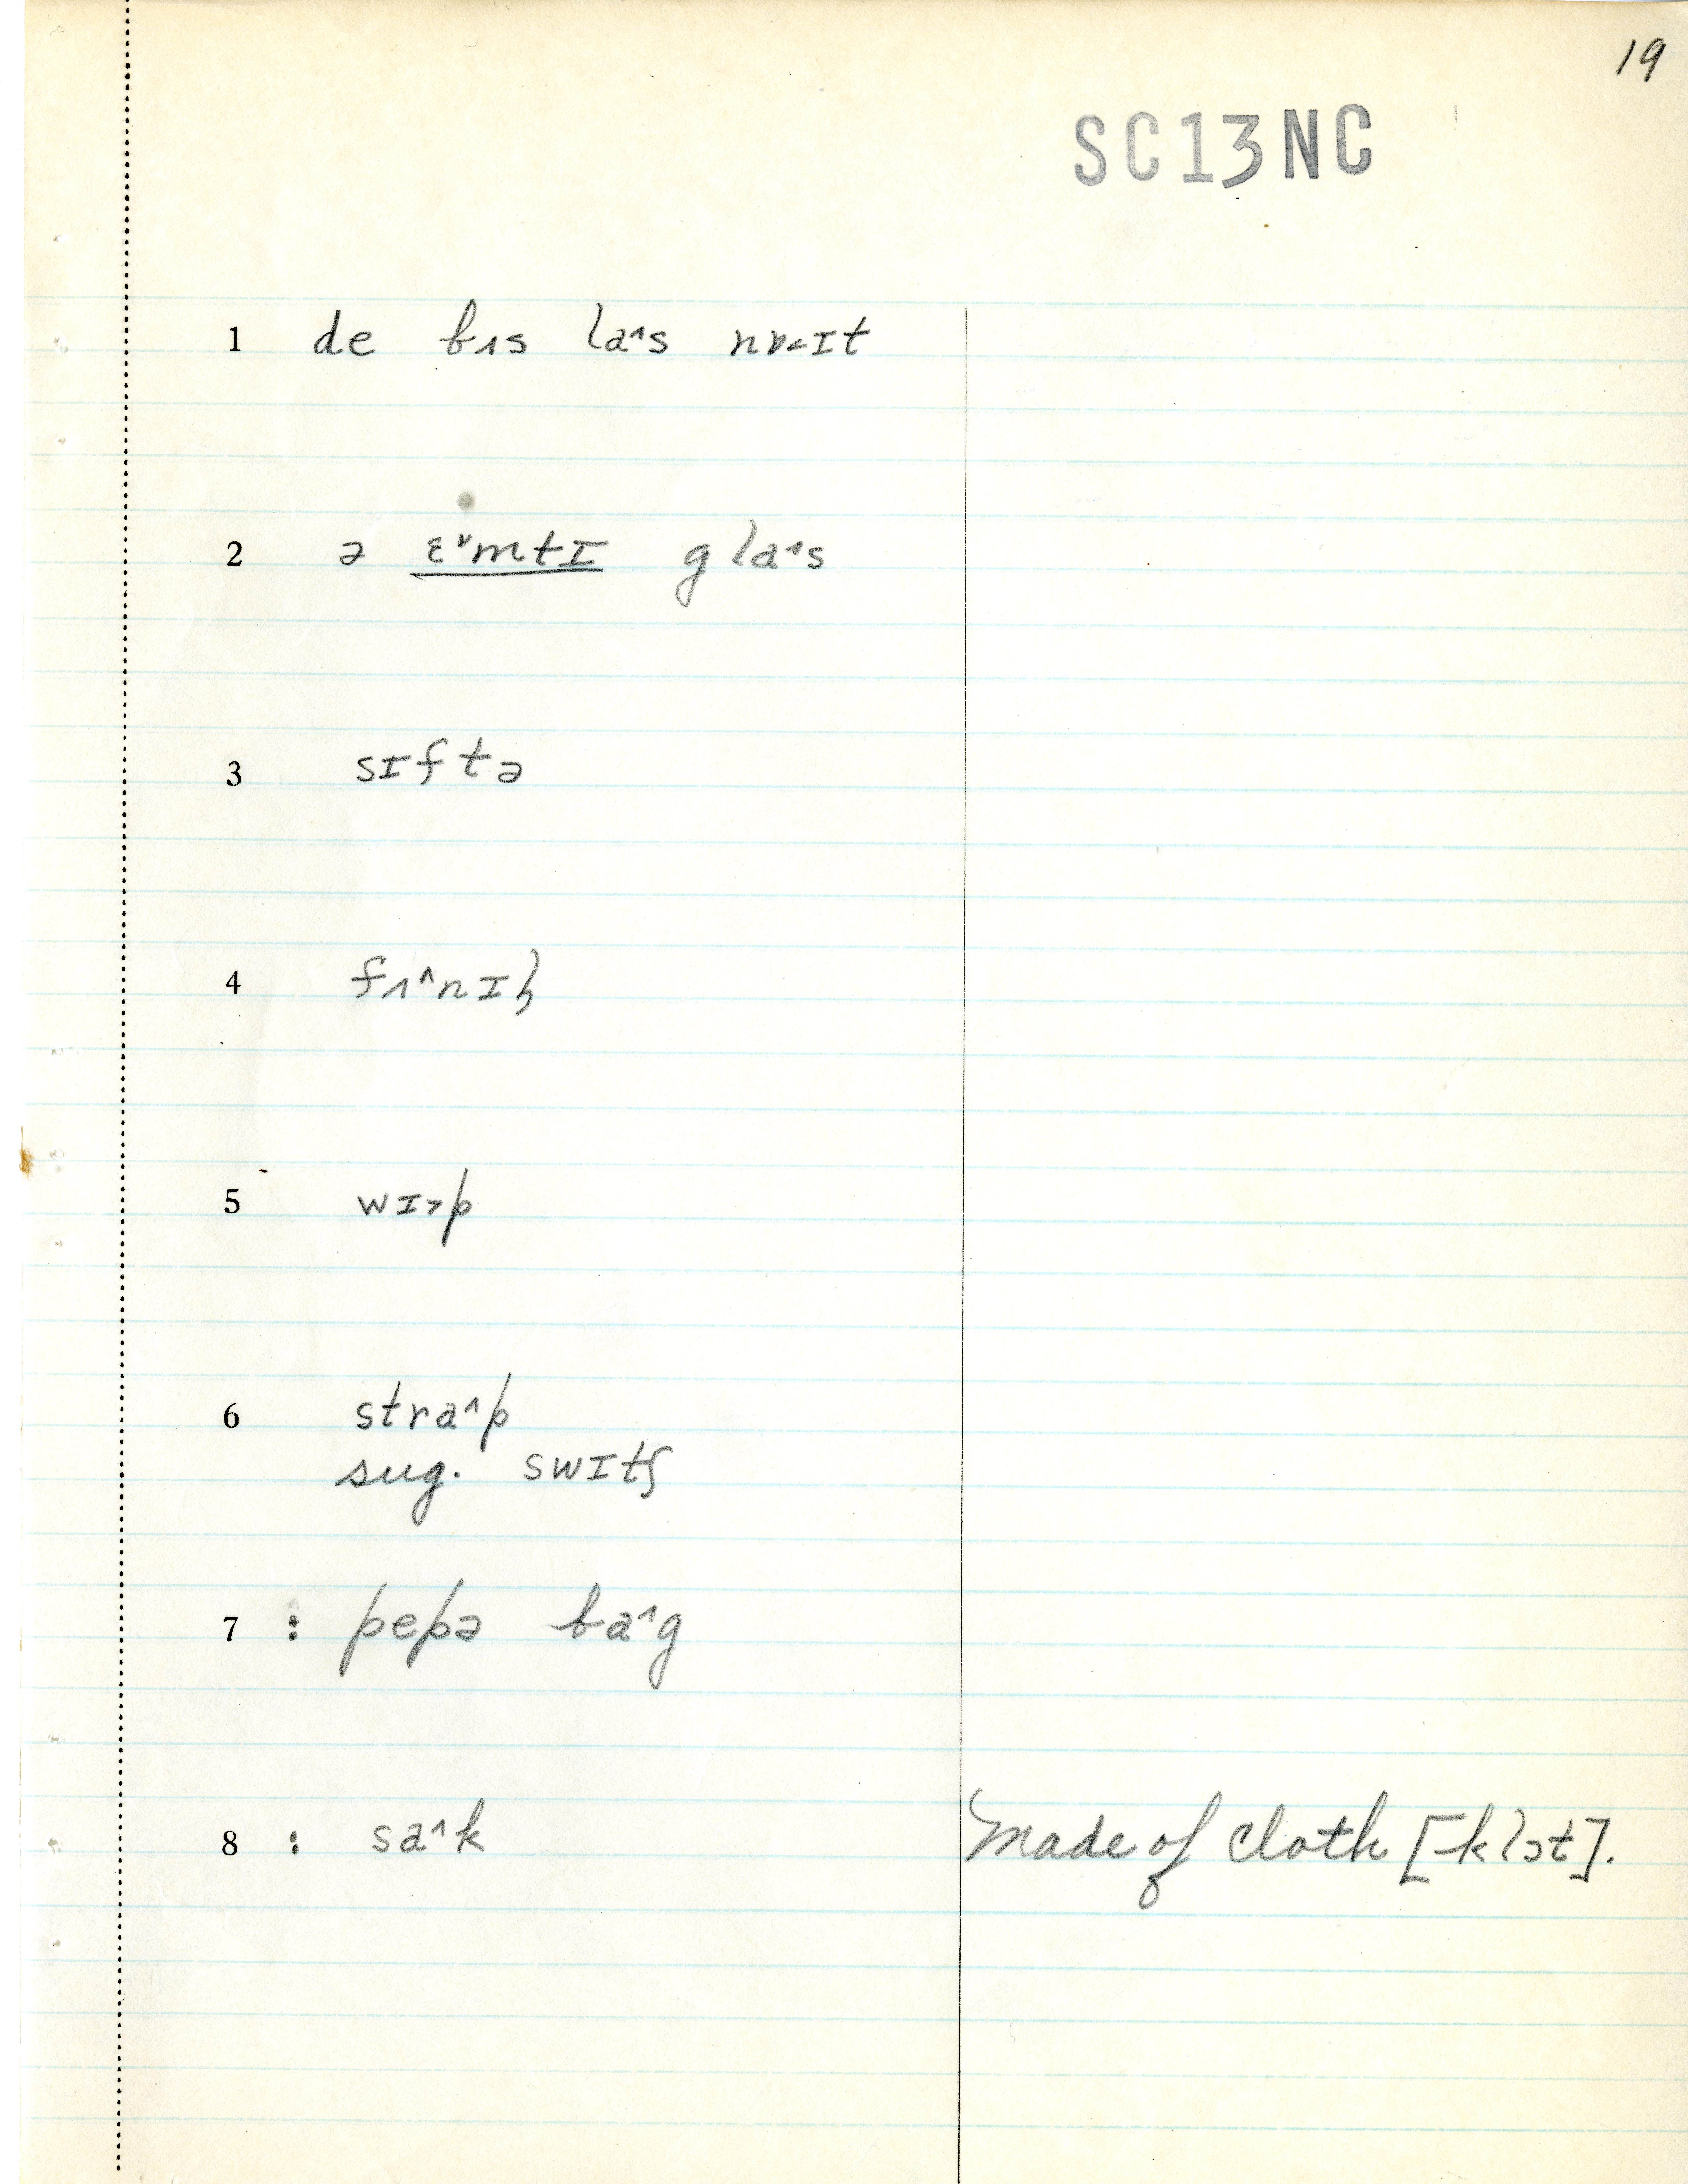 19
SC13NC
1 de bʌs la^s nɒ˂ɪt
2 ə ɛ˅mtɪ gla^s
3 sɪftə
4 fʌ^nɪɫ
5 wɪ˃p
6 stra^p
sug. swɪtʃ
7 : pepə ba^g
8 : sa^k made of cloth [klɔt].